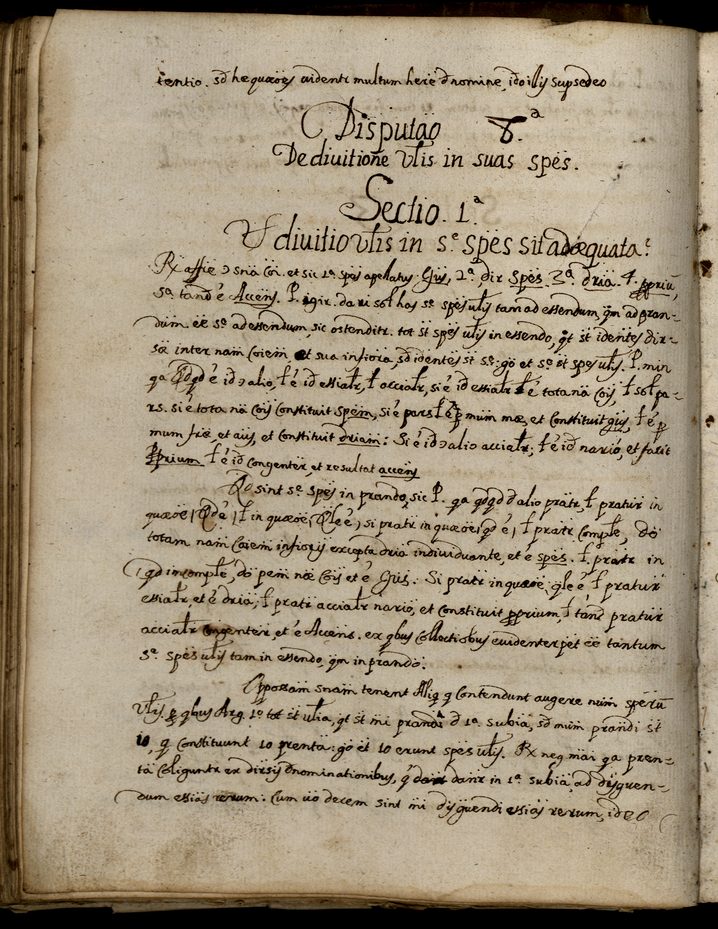 tentio. sd hae quaeoes uidentr multum here d nomine, ido illis supsedeo
Disputao 8.a
De diuitione Vlis in suas spēs.
Sectio. 1.a
V̄ diuitio vlis in s.e spēs sit adaequata.
Rx affie snīa coi. et sic 1.a spēs apellatur Gūs, 2.a, dir Spēs. 3.a dria. 4. pprīu,
5.a tand é Accēns. P. igir. dari sol has s.e spēs ulis tam ad essendum, qm ad pran-
dum. eē s.e ad essendum, sic ostenditr. tot st spēs ulis in essendo, qt st identes dir-
sae inter nam coiem et sua infiora, sd identes st s.e: go et s.e st spēs ulis. P. min
qa Qdqd é id alio, t é id essialr, t accialr, si é id essialr t é tota nā cois, t sol pa-
rs. si é tota nā cois constituit spēm, si é pars mum mae, et constituit gūs, t é p
mum friae, et aiis, et constituit driam: Si é id alio accialr; t é id nario, et facit
Pprium t é id congenter, et resultat accēns
Qd sint s.e spēs in prando, sic P. qa qdqd d alio pratr, t pratur in
quaeoe, Qd é, t in quaeoe, Qle é, si pratr in quaeoe, qd é, t pratr comple, do
totam nam coiem infioris excepta dria indiuiduante, et é spēs. t pratr in
qd incomple, do pem nae cois et é Gūs. Si pratr in quaeoe, qle é t pratur
essialr, et é dria, t pratr accialr nario, et constituit pprium, t tand pratur
accialr congenter, et é Accēns. ex qbus collectiobus euidenter pet eē tantum
5.e spēs ulis tam in essendo, qm in prando.
Opposam snam tenent Aliq q contendunt augere num sperū
Vlis. p qbus Arg. 1.o tot st ulia, qt st mi prandi d 1.a subia, sd mum prandi st
10, q constituunt 10 prenta: go et 10 erunt spēs ulis. Rx neg. mai. qa pren-
ta coliguntr ex dirsis dnominationibus, q danr in 1.a subia, ad disguen-
dum essias rerum. Cum uo decem sint mi disguendi essias rerum, ideo